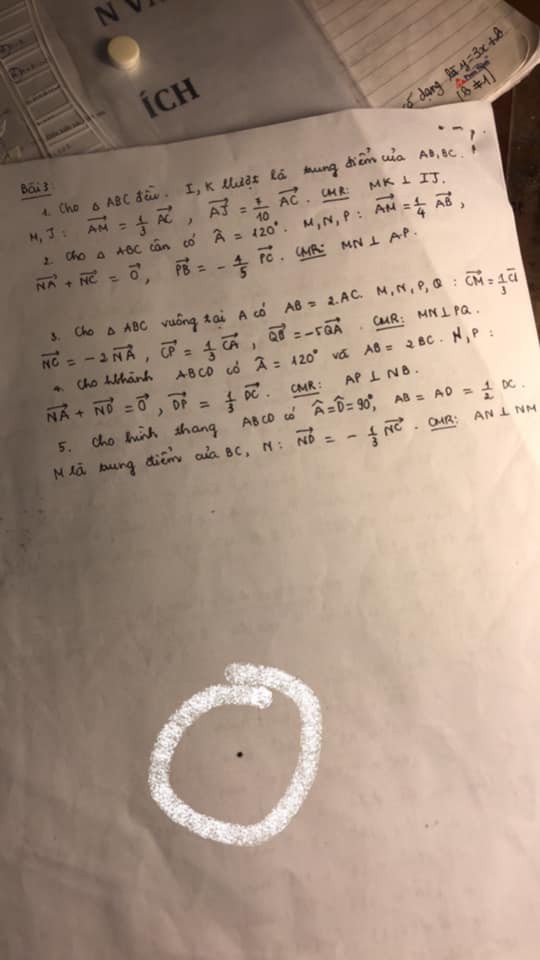 N V
ÍCH
số dạng là y = 3x + B
[B ≠ 1]
Bài 3:
1. Cho △ ABC đều. I, K lượt là trung điểm của AB, BC.
M, J : \overrightarrow{AM} = \frac{1}{3} \overrightarrow{AC} , \overrightarrow{AJ} = \frac{7}{10} \overrightarrow{AC} . CMR: MK ⊥ IJ.
2. Cho △ ABC cân có Â = 120°. M, N, P : \overrightarrow{AM} = \frac{1}{4} \overrightarrow{AB} ,
\overrightarrow{NA} + \overrightarrow{NC} = \overrightarrow{0} , \overrightarrow{PB} = - \frac{4}{5} \overrightarrow{PC} . CMR: MN ⊥ AP.
3. Cho △ ABC vuông tại A có AB = 2.AC. M, N, P, Q : \overrightarrow{CM} = \frac{1}{3}
\overrightarrow{NC} = -2 \overrightarrow{NA} , \overrightarrow{CP} = \frac{1}{3} \overrightarrow{CA} , \overrightarrow{QB} = -5 \overrightarrow{QA} . CMR: MN ⊥ PQ.
4. Cho hbhành ABCD có Â = 120° và AB = 2BC. N, P :
\overrightarrow{NA} + \overrightarrow{ND} = \overrightarrow{0} , \overrightarrow{DP} = \frac{1}{3} \overrightarrow{DC} . CMR: AP ⊥ NB.
5. Cho hình thang ABCD có Â = D̂ = 90°, AB = AD = \frac{1}{2} DC.
M là trung điểm của BC, N : \overrightarrow{ND} = - \frac{1}{3} \overrightarrow{NC} . CMR: AN ⊥ NM